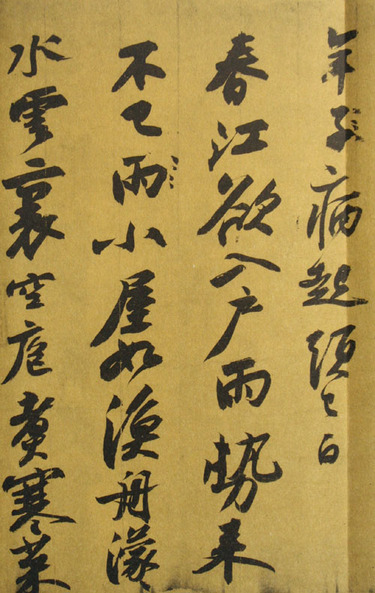 年子病起頭已白
春江欲入戶雨勢來
不已雨小屋如漁舟濛〻
水雲裏空庖煮寒菜